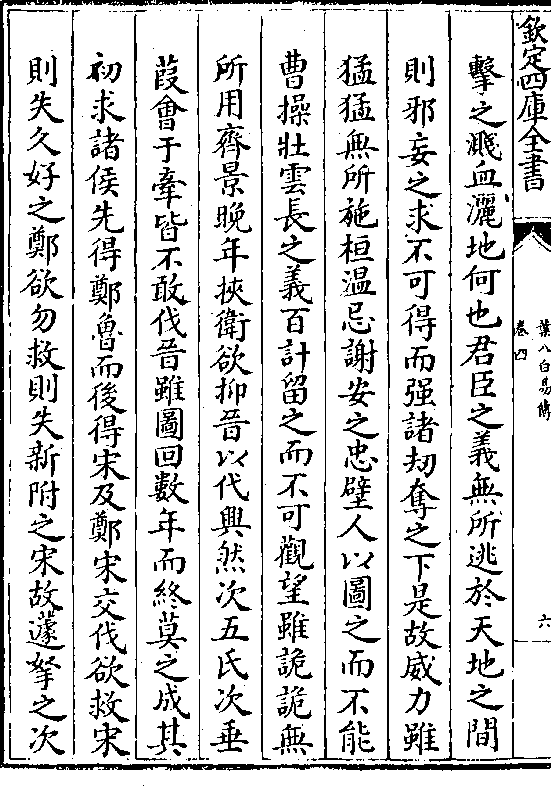 欽定四庫全書
葉八白易傳
卷四
六
擊之濺血灑地何也君臣之義無所逃於天地之間
則邪妄之求不可得而强諸刼奪之下是故威力雖
猛猛無所施桓温忌謝安之忠壁人以圖之而不能
曹操壯雲長之義百計留之而不可觀望雖詭詭無
所用齊景晚年挾衛欲抑晉以代興然次五氏次垂
葭會于牽皆不敢伐晉雖圖回數年而終莫之成其
初求諸侯先得鄭魯而後得宋及鄭宋交伐欲救宋
則失久好之鄭欲勿救則失新附之宋故蘧挐之次